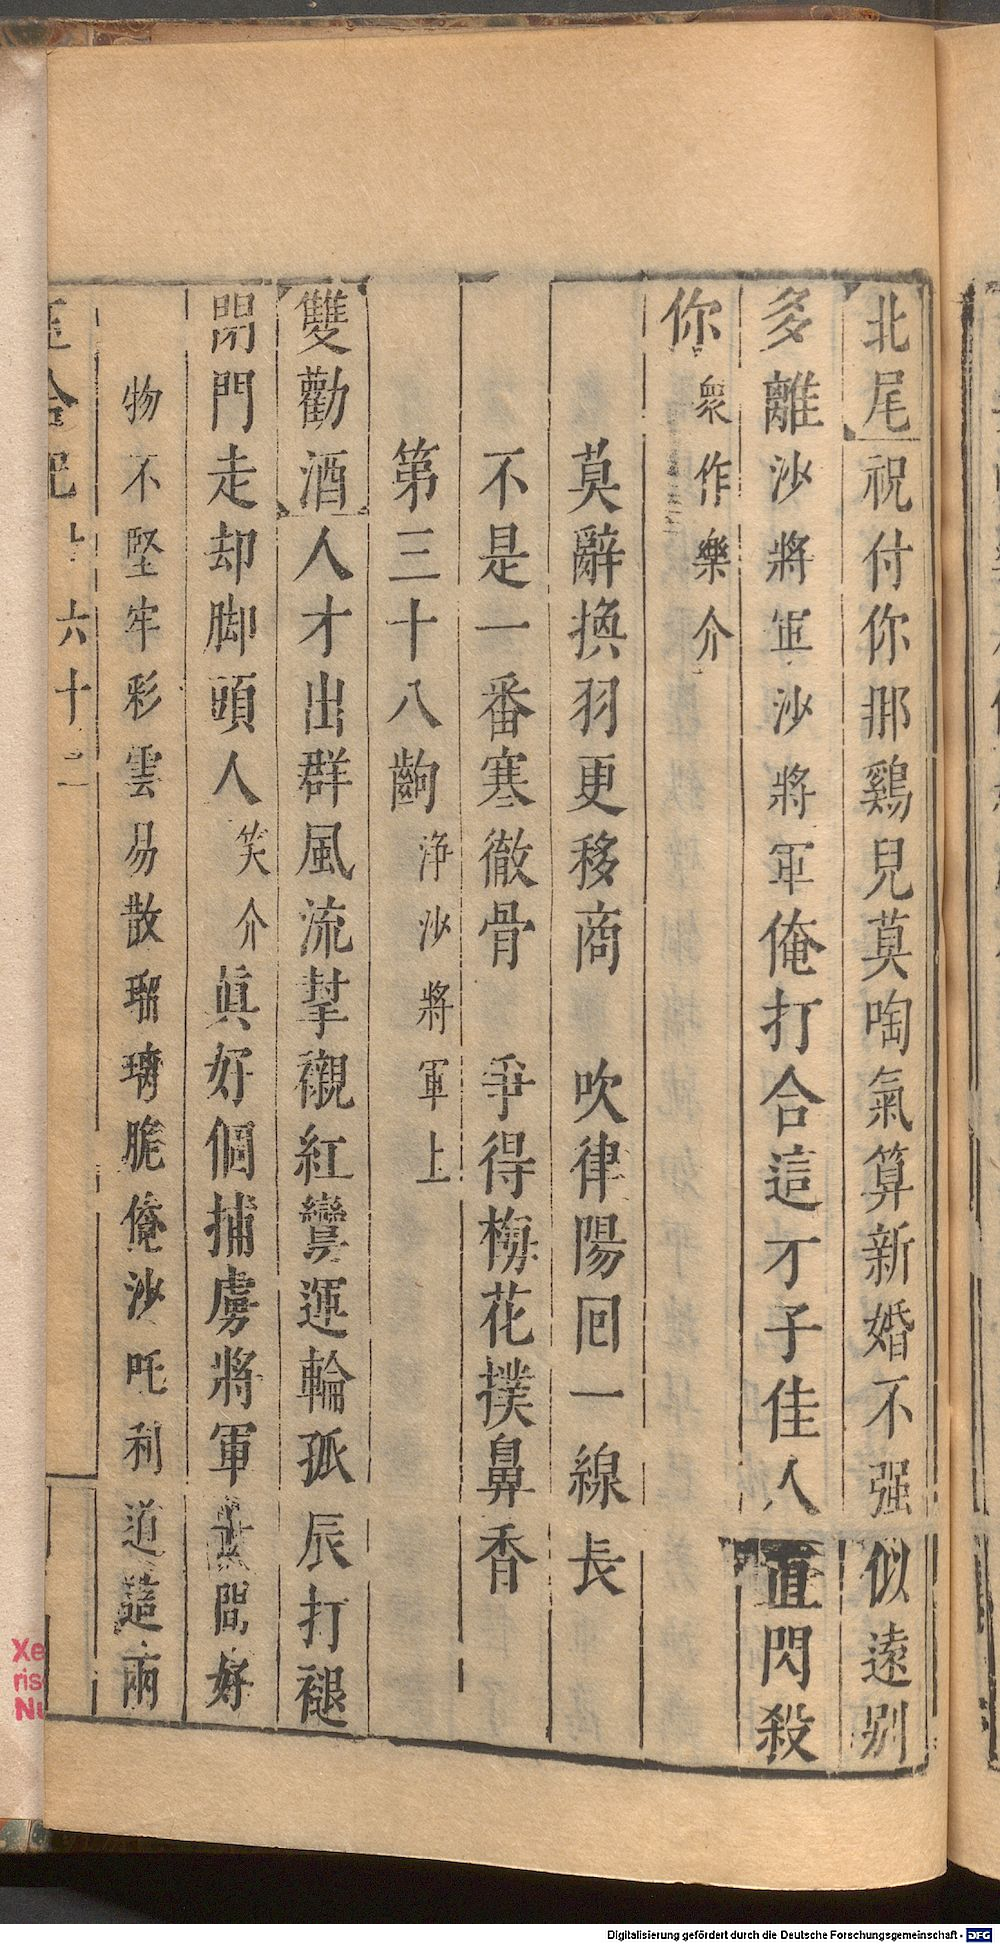 北尾祝付你那鷄兒莫啕氣算新婚不强似遠别
多離沙將軍沙將軍俺打合這才子佳人直閃殺
你衆作樂介
莫辭換羽更移商　吹律陽囘一線長
不是一番寒徹骨　爭得梅花撲鼻香
第三十八齣淨沙將軍上
雙勸酒人才出群風流挈襯紅鸞運輪孤辰打褪
閉門走却脚頭人笑介眞好個捕虜將軍世間好
物不堅牢彩雲易散瑠璃脆俺沙吒利道這兩
六十二
Digitalisierung gefördert durch die Deutsche Forschungsgemeinschaft - DFG